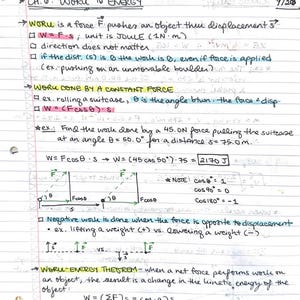 CH. 6: WORK & ENERGY 9/30
→ WORK is a force F pushes an object thru displacement s
□ W = F·s, unit is JOULE (1N·m)
□ direction does not matter
□ if the dist. (s) is 0 the work is 0, even if force is applied
(ex. pushing on an unmovable boulder)
→ WORK DONE BY A CONSTANT FORCE
□ ex. rolling a suitcase, θ is the angle btwn. the force & disp.
□ W = (Fcosθ)s
★ ex: Find the work done by a 45.0N force pulling the suitcase
at an angle θ = 50.0° for a distance s = 75.0m.
W = Fcosθ · s → W = (45 cos 50°) · 75 = 2170 J
F F ★NOTE: cos0° = 1
cos90° = 0
θ Fcosθ θ Fcosθ cos180° = -1
s
□ Negative work is done when the force is opposite to displacement
• ex. lifting a weight (+) vs. lowering a weight (-)
vs.
→ WORK-ENERGY THEOREM - when a net force performs work on
an object, the result is a change in the kinetic energy of the
object